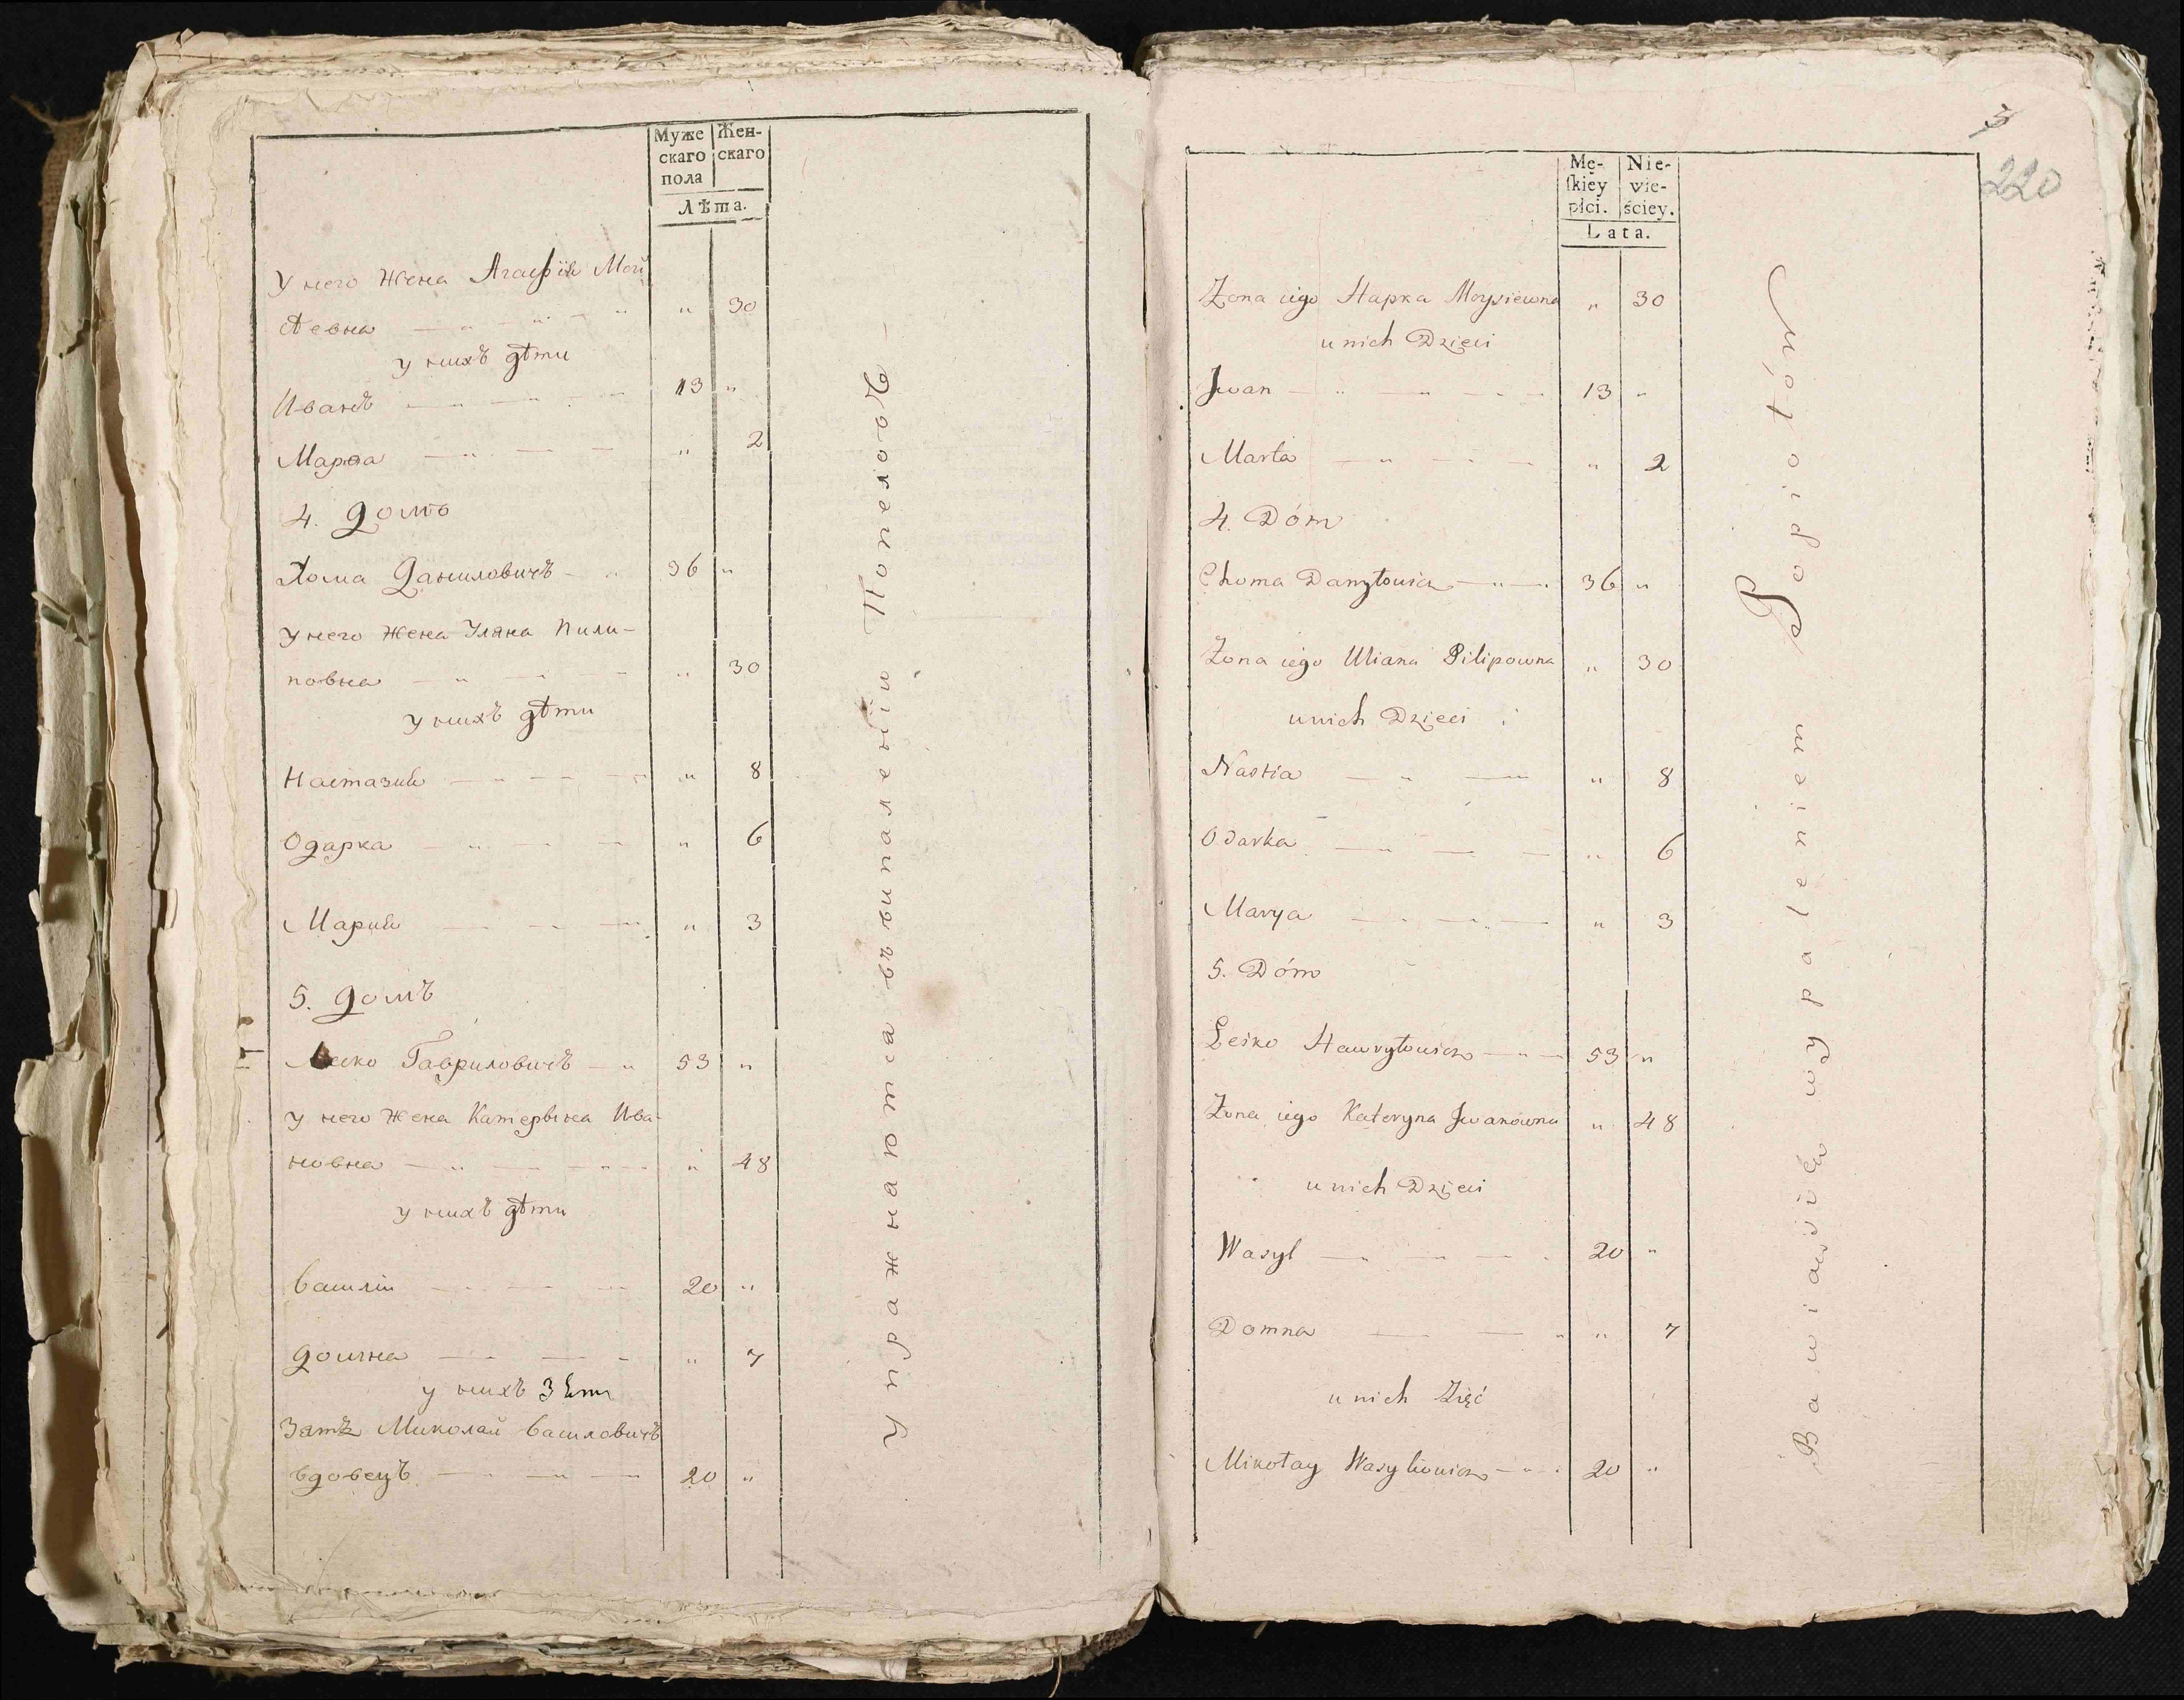 Муже
скаго
пола
Жен-
скаго
Лѣта.
У него жена Агафія Мой
сѣевна " 30
у нихъ дѣти
Иванъ 13 "
Марѳа " 2
4. Домъ
Хома Даниловичъ 36 "
У него жена Уляна Пили-
повна " 30
у нихъ дѣти
Настазия " 8
Одарка " 6
Мария " 3
5. Домъ
Леско Гавриловичъ 53 "
у него жена Катерына Ива-
новна " 48
у нихъ дѣти
Василій 20 "
Домна " 7
у нихъ Зять
Зять Миколай Василовичъ
вдовецъ 20 "
Упражнаются въ выпаленіи Попеловъ
5
220
Mę-
ſkiéy
płci.
Nie-
wie-
ściey.
Lata.
Żona iego Hapka Moysiewna " 30
u nich Dzieci
Jwan 13 "
Marta " 2
4. Dóm
Choma Danyłowicz 36 "
Żona iego Uliana Pilipowna " 30
u nich Dzieci
Nastia " 8
Odarka " 6
Marya " 3
5. Dóm
Leśko Hawryłowicz 53 "
Żona iego Kateryna Jwanowna " 48
u nich Dzieci
Wasyl 20 "
Domna " 7
u nich Zięć
Mikołay Wasylowicz 20 "
Bawią się wypaleniem Popiołów